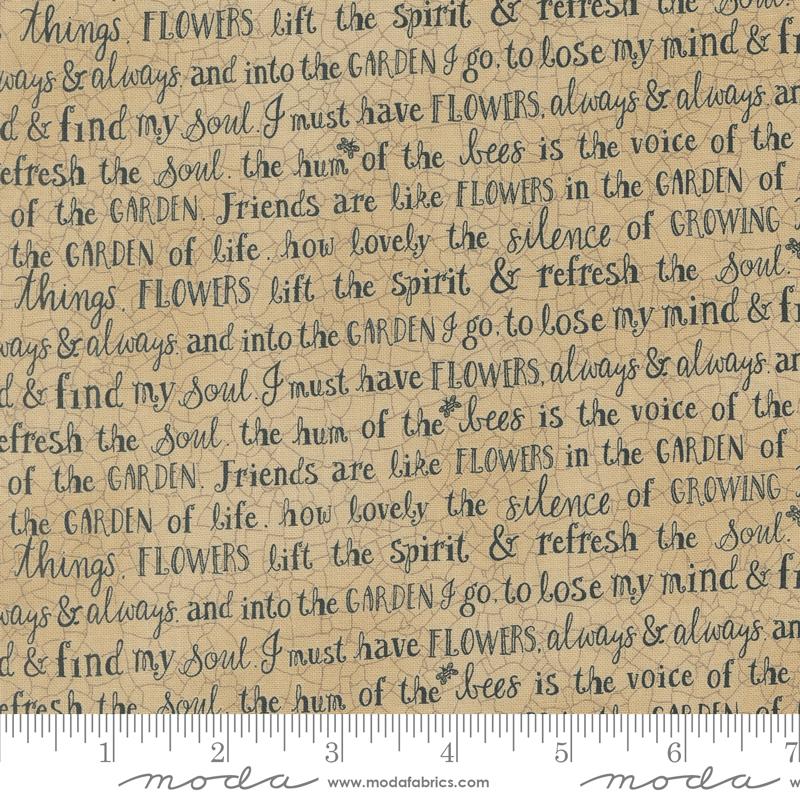 things. FLOWERS lift the spirit & refresh the soul.
ways & always. and into the GARDEN I go, to lose my mind &
d & find my soul. I must have FLOWERS, always & always. an
efresh the soul. the hum of the bees is the voice of the
of the GARDEN. Friends are like FLOWERS in the GARDEN of
the GARDEN of life. how lovely the silence of GROWING
things. FLOWERS lift the spirit & refresh the soul.
ways & always. and into the GARDEN I go, to lose my mind & fi
d & find my soul. I must have FLOWERS, always & always. an
efresh the soul. the hum of the bees is the voice of the
of the GARDEN. Friends are like FLOWERS in the GARDEN of
the GARDEN of life. how lovely the silence of GROWING
things. FLOWERS lift the spirit & refresh the soul.
ways & always. and into the GARDEN I go, to lose my mind & fi
d & find my soul. I must have FLOWERS, always & always. an
efresh the soul. the hum of the bees is the voice of the
1 2 3 4 5 6 7
moda www.modafabrics.com moda w